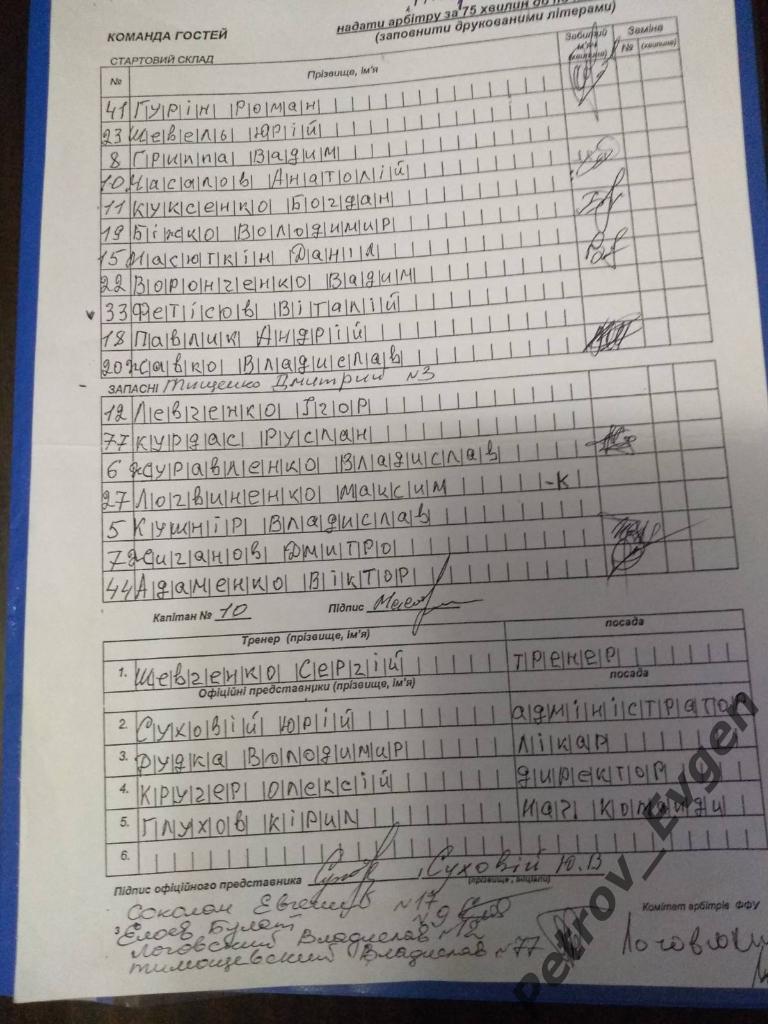 надати арбітру за 75 хвилин до
КОМАНДА ГОСТЕЙ (заповнити друкованими літерами)
СТАРТОВИЙ СКЛАД Забитий м'яч (хвилина) Заміна
№ Прізвище, ім'я № (хвилина)
41 Гурін Роман
23 Шевель Юрій
8 Гриппа Вадим
10 Масалов Анатолій
11 Куксенко Богдан
19 Біжко Володимир
15 Масюткін Даніл
22 Воронченко Вадим
33 Фетісов Віталій
18 Павлик Андрій
20 Савко Владислав
ЗАПАСНІ Тищенко Дмитрий №3
12 Левченко Ігор
77 Курдас Руслан
6 Журавленко Владислав
27 Логвиненко Максим -К
5 Кушнір Владислав
7 Циганов Дмитро
44 Адаменко Віктор
Капітан № 10 Підпис
Тренер (прізвище, ім'я) посада
1. Шевченко Сергій тренер
Офіційні представники (прізвище, ім'я) посада
2. Суховій Юрій адміністратор
3. Рудка Володимир лікар
4. Кручер Олексій директор
5. Глухов Кіріл нач команди
6.
Підпис офіційного представника , Суховій Ю.В
(прізвище, ініціали)
Соколан Евгений №17
3 Елоев Булат №9
Логовский Владислав №12
Тимощевский Владислав №77
Комітет арбітрів ФФУ
Petrov_Evgen